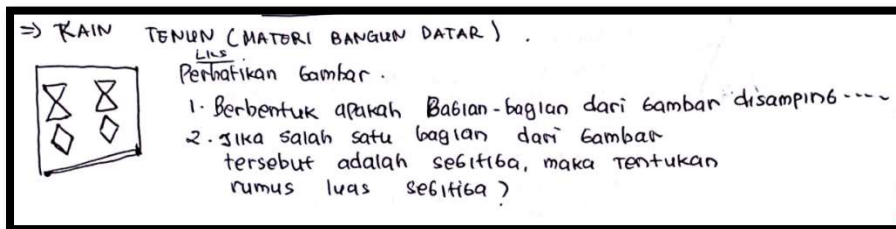 => KAIN TENUN (MATERI BANGUN DATAR) .
LKS
Perhatikan Gambar .
1. Berbentuk apakah Bagian-bagian dari Gambar disamping ----
2. Jika salah satu bagian dari Gambar
tersebut adalah segitiga, maka Tentukan
rumus luas segitiga ?